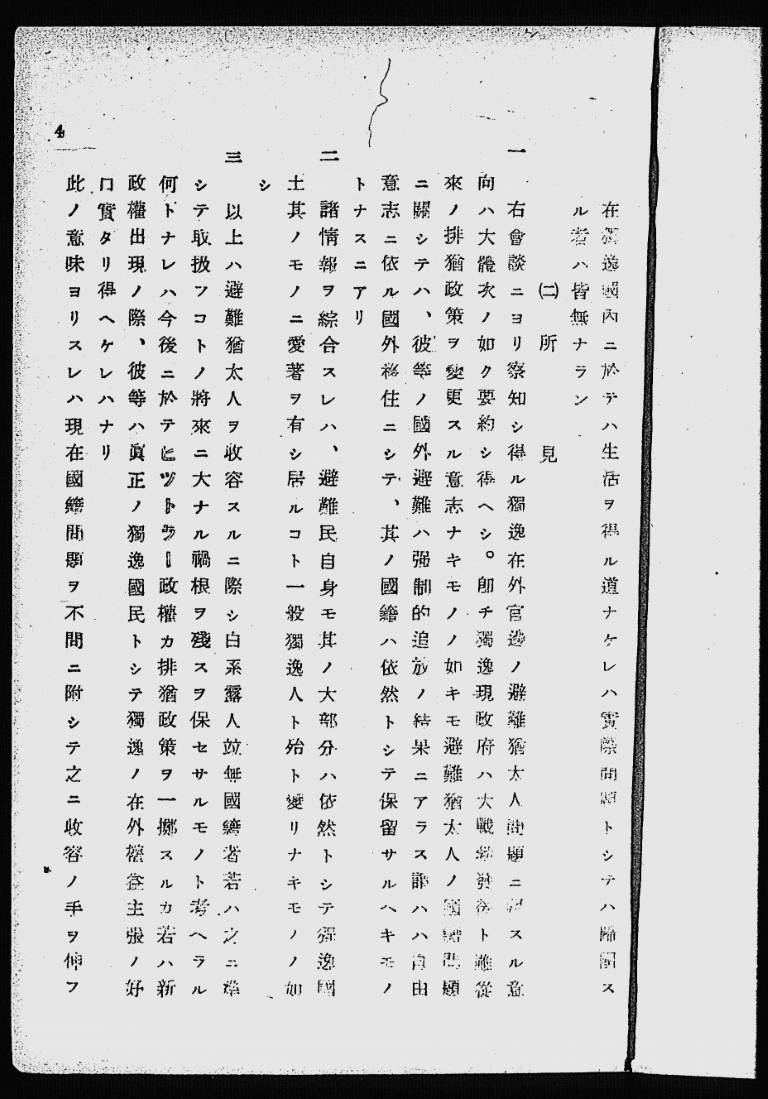 在獨逸國內ニ於テハ生活ヲ得ル道ナケレハ實際問題トシテハ歸國ス
ル者ハ皆無ナラン
㈡所見
一 右會談ニヨリ察知シ得ル獨逸在外官邊ノ避難猶太人問題ニ對スル意
向ハ大體次ノ如ク要約シ得ヘシ。卽チ獨逸現政府ハ大戰勃發後ト雖從
來ノ排猶政策ヲ變更スル意志ナキモノノ如キモ避難猶太人ノ國籍問題
ニ關シテハ、彼等ノ國外避難ハ强制的追放ノ結果ニアラス謂ハハ自由
意志ニ依ル國外移住ニシテ、其ノ國籍ハ依然トシテ保留サルヘキモノ
トナスニアリ
二 諸情報ヲ綜合スレハ、避難民自身モ其ノ大部分ハ依然トシテ獨逸國
土其ノモノニ愛著ヲ有シ居ルコト一般獨逸人ト殆ト變リナキモノノ如
シ
三 以上ハ避難猶太人ヲ收容スルニ際シ白系露人竝無國籍者若ハ之ニ準
シテ取扱フコトノ將來ニ大ナル禍根ヲ殘スヲ保セサルモノト考ヘラル
何トナレハ今後ニ於テヒツトラー政權カ排猶政策ヲ一擲スルカ若ハ新
政權出現ノ際、彼等ハ眞正ノ獨逸國民トシテ獨逸ノ在外權益主張ノ好
口實タリ得ヘケレハナリ
此ノ意味ヨリスレハ現在國籍問題ヲ不問ニ附シテ之ニ收容ノ手ヲ伸フ
4